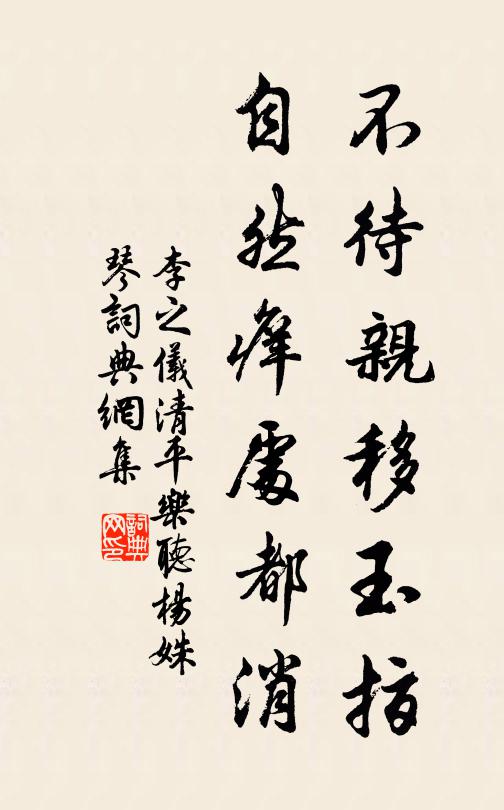 不待親移玉指
自然癢處都消
李之儀清平樂聽楊姝
琴詞典網集
詞典
网印